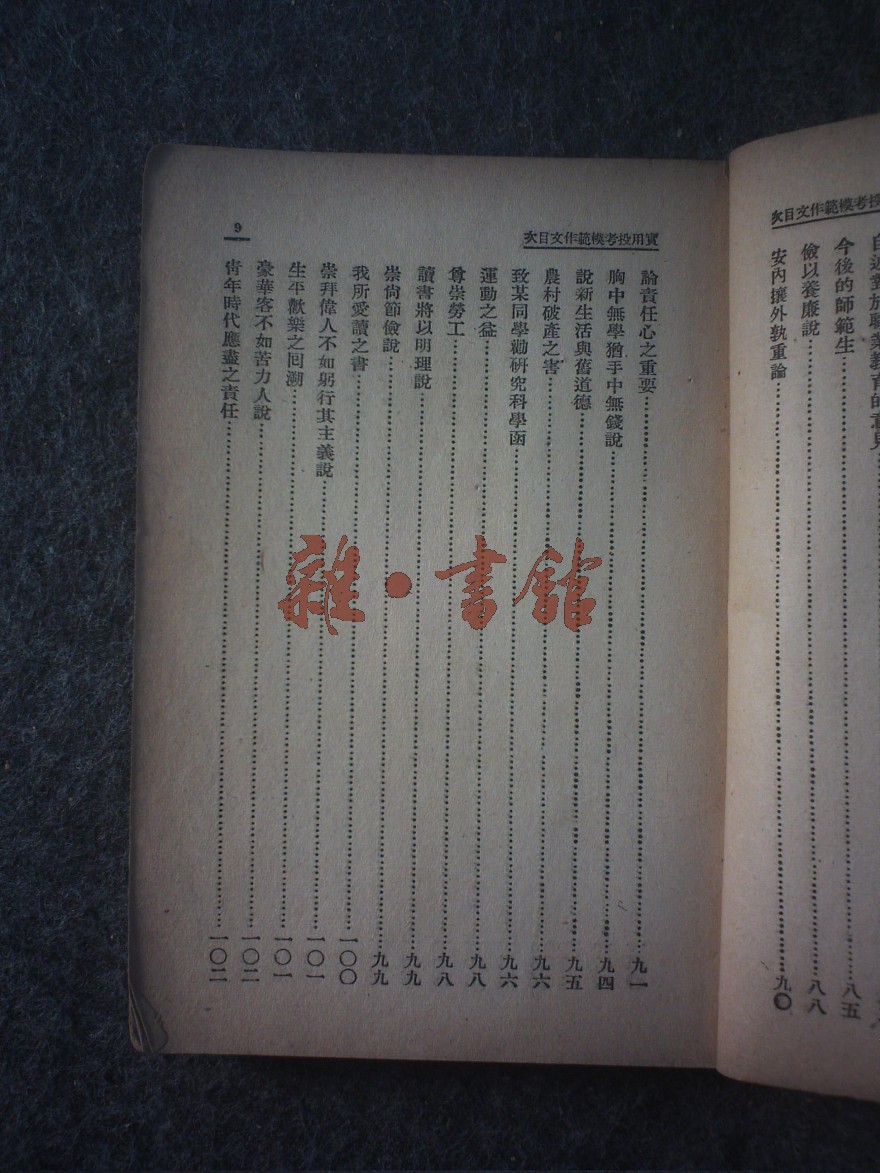 投考模範作文目次
對於職業教育的意見
今後的師範生……八五
儉以養廉說……八八
安內攘外孰重論……九〇
實用投考模範作文目次
9
論責任心之重要……九一
胸中無學猶手中無錢說……九四
說新生活與舊道德……九五
農村破產之害……九六
致某同學勸研究科學函……九六
運動之益……九八
尊崇勞工……九八
讀書將以明理說……九九
崇尙節儉說……九九
我所愛讀之書……一〇〇
崇拜偉人不如躬行其主義說……一〇一
生平歡樂之回溯……一〇一
豪華客不如苦力人說……一〇二
靑年時代應盡之責任……一〇二
雜•書館